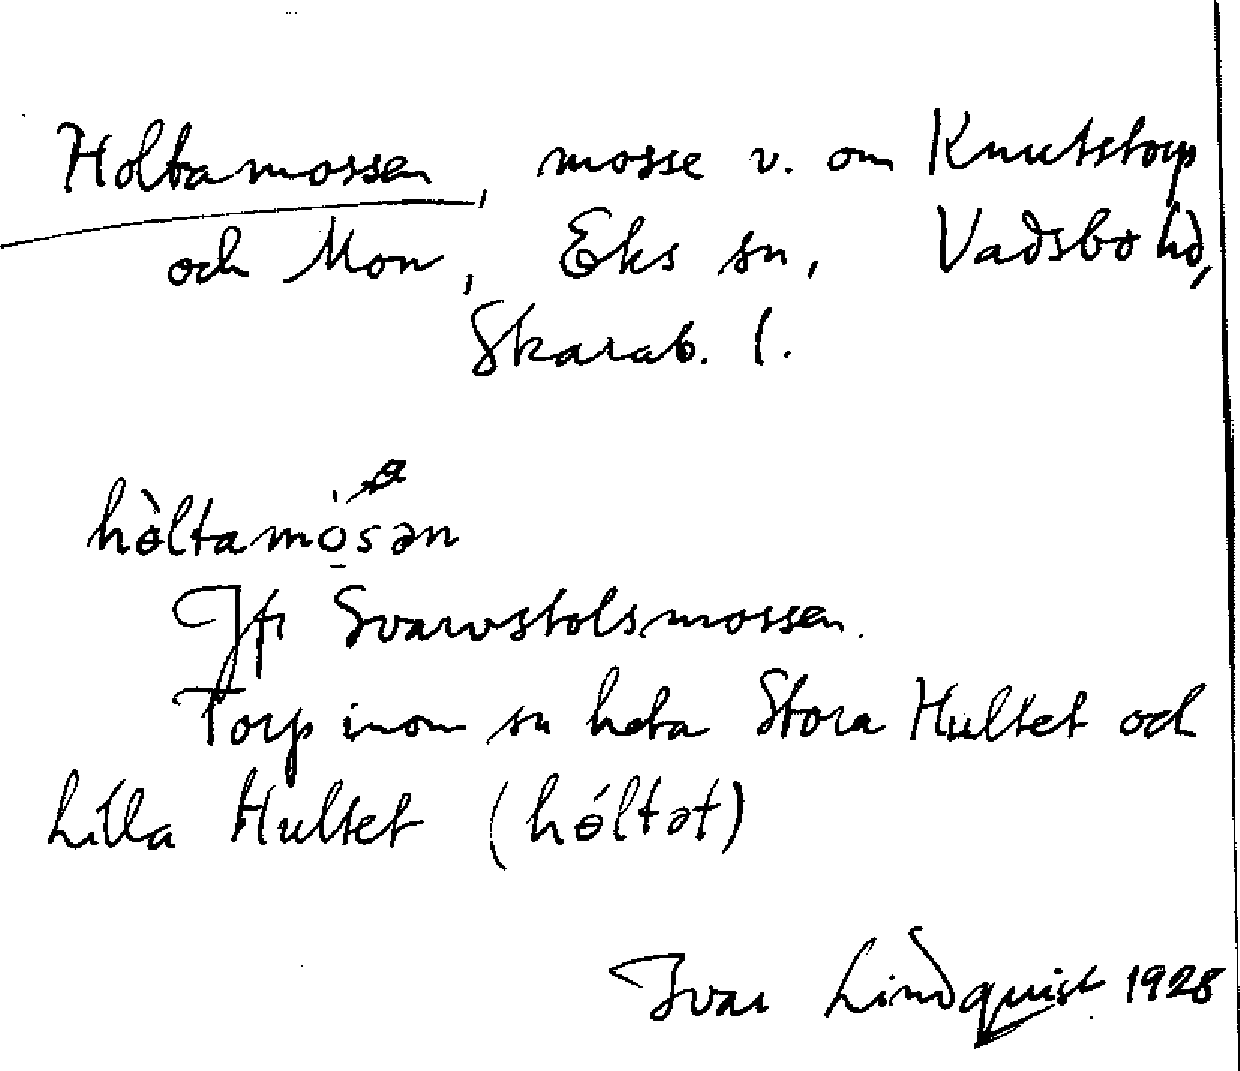 Holtamossen, mosse v. om Knutstorp
och Mon, Eks sn, Vadsbo hd,
Skarab. l.
hѳ̀ltamo̱̍sən
Jfr Svarvstolsmossen.
Torp inom sn heta Stora Hultet och
Lilla Hultet (hѳ́ltət)
Ivar Lindquist 1928